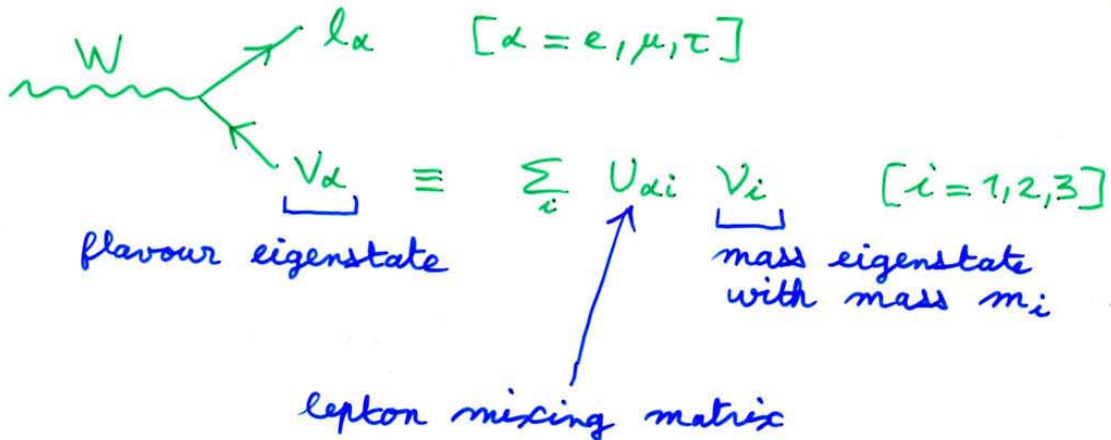 W
lα [α = e, μ, τ]
να ≡ ∑i Uαi νi [i = 1, 2, 3]
flavour eigenstate
mass eigenstate
with mass mi
lepton mixing matrix